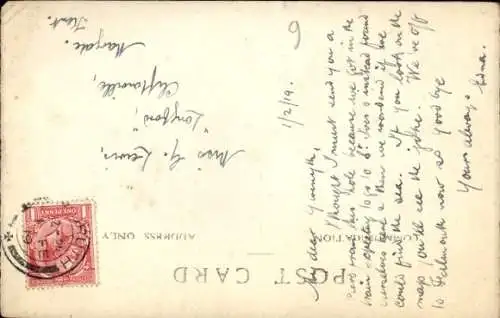 POST CARD
COMMUNICATION
ADDRESS ONLY
6
1/2/19.
My dear Gwenyth,
Thought I must send you a
because we got in the
train expecting to go to St Ives & instead found
ourselves here & then we wondered if we
could find the sea. If you look on the
map you'll see the joke. We're off
to Falmouth now so good bye
Yours always
Edna.
Miss G. Lewis,
"Longford",
Cliftonville,
Margate.
Kent.
ONE PENNY